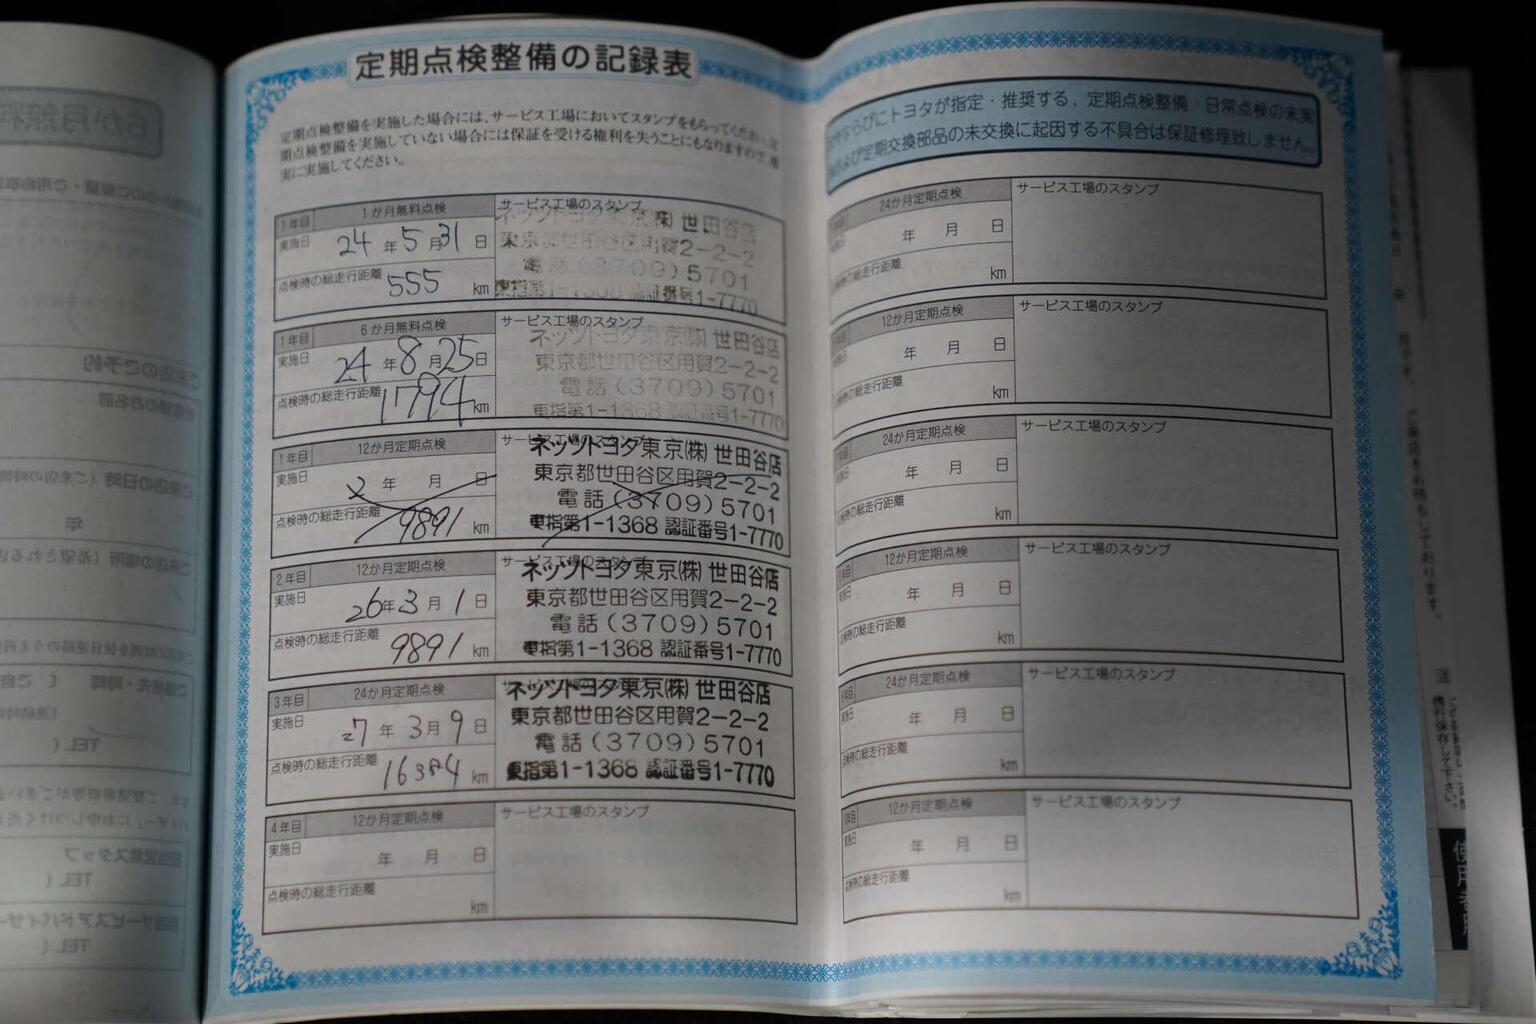 定期点検整備の記録表
定期点検整備を実施した場合には、サービス工場においてスタンプをもらってください。定
期点検整備を実施していない場合には保証を受ける権利を失うことにもなりますので、確
実に実施してください。
1年目 1か月無料点検 サービス工場のスタンプ
実施日 24年5月31日
点検時の総走行距離 555 km
ネッツトヨタ東京㈱ 世田谷店
東京都世田谷区用賀2-2-2
電話(3709)5701
東指第1-1368 認証番号1-7770
1年目 6か月無料点検 サービス工場のスタンプ
実施日 24年8月25日
点検時の総走行距離 1794 km
ネッツトヨタ東京㈱ 世田谷店
東京都世田谷区用賀2-2-2
電話(3709)5701
東指第1-1368 認証番号1-7770
1年目 12か月定期点検 サービス工場のスタンプ
実施日 2年 月 日
点検時の総走行距離 9891 km
ネッツトヨタ東京㈱ 世田谷店
東京都世田谷区用賀2-2-2
電話(3709)5701
東指第1-1368 認証番号1-7770
2年目 12か月定期点検 サービス工場のスタンプ
実施日 26年3月1日
点検時の総走行距離 9891 km
ネッツトヨタ東京㈱ 世田谷店
東京都世田谷区用賀2-2-2
電話(3709)5701
東指第1-1368 認証番号1-7770
3年目 24か月定期点検
実施日 27年3月9日
点検時の総走行距離 16384 km
ネッツトヨタ東京㈱ 世田谷店
東京都世田谷区用賀2-2-2
電話(3709)5701
東指第1-1368 認証番号1-7770
4年目 12か月定期点検 サービス工場のスタンプ
実施日 年 月 日
点検時の総走行距離 km
ならびにトヨタが指定・推奨する、定期点検整備・日常点検の未実
および定期交換部品の未交換に起因する不具合は保証修理致しません。
年目 24か月定期点検 サービス工場のスタンプ
実施日 年 月 日
点検時の総走行距離 km
年目 12か月定期点検 サービス工場のスタンプ
実施日 年 月 日
点検時の総走行距離 km
年目 24か月定期点検 サービス工場のスタンプ
実施日 年 月 日
点検時の総走行距離 km
年目 12か月定期点検 サービス工場のスタンプ
実施日 年 月 日
点検時の総走行距離 km
年目 24か月定期点検 サービス工場のスタンプ
実施日 年 月 日
点検時の総走行距離 km
年目 12か月定期点検 サービス工場のスタンプ
実施日 年 月 日
点検時の総走行距離 km